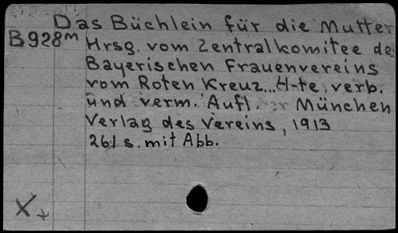 Das Büchlein für die Mutter
B928m Hrsg. vom Zentralkomitee de
Bayerischen Frauenvereins
vom Roten Kreuz... 4-te verb.
und verm. Aufl. München
Verlag des Vereins, 1913
261 s. mit Abb.
X+